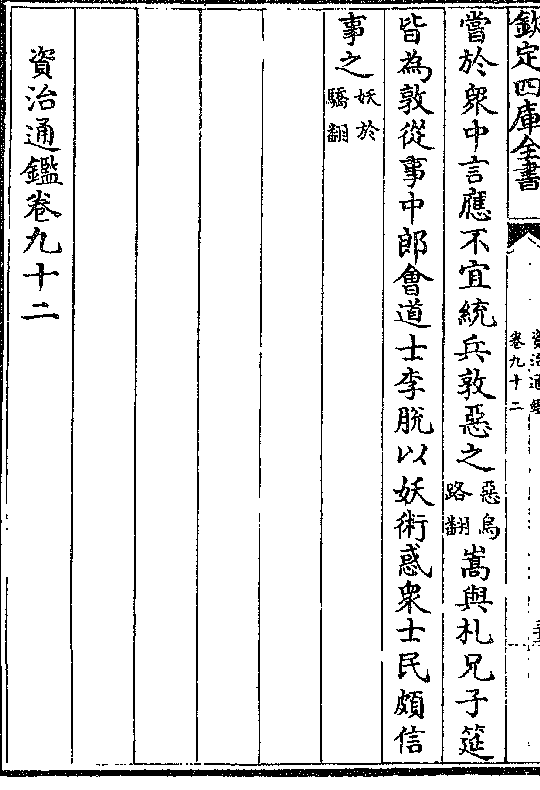 欽定四庫全書
資治通鑑
卷九十二
嘗於衆中言應不宜統兵敦惡之惡烏路翻嵩與札兄子筵
皆為敦從事中郎會道士李脫以妖術惑衆士民頗信
事之妖於驕翻
資治通鑑卷九十二